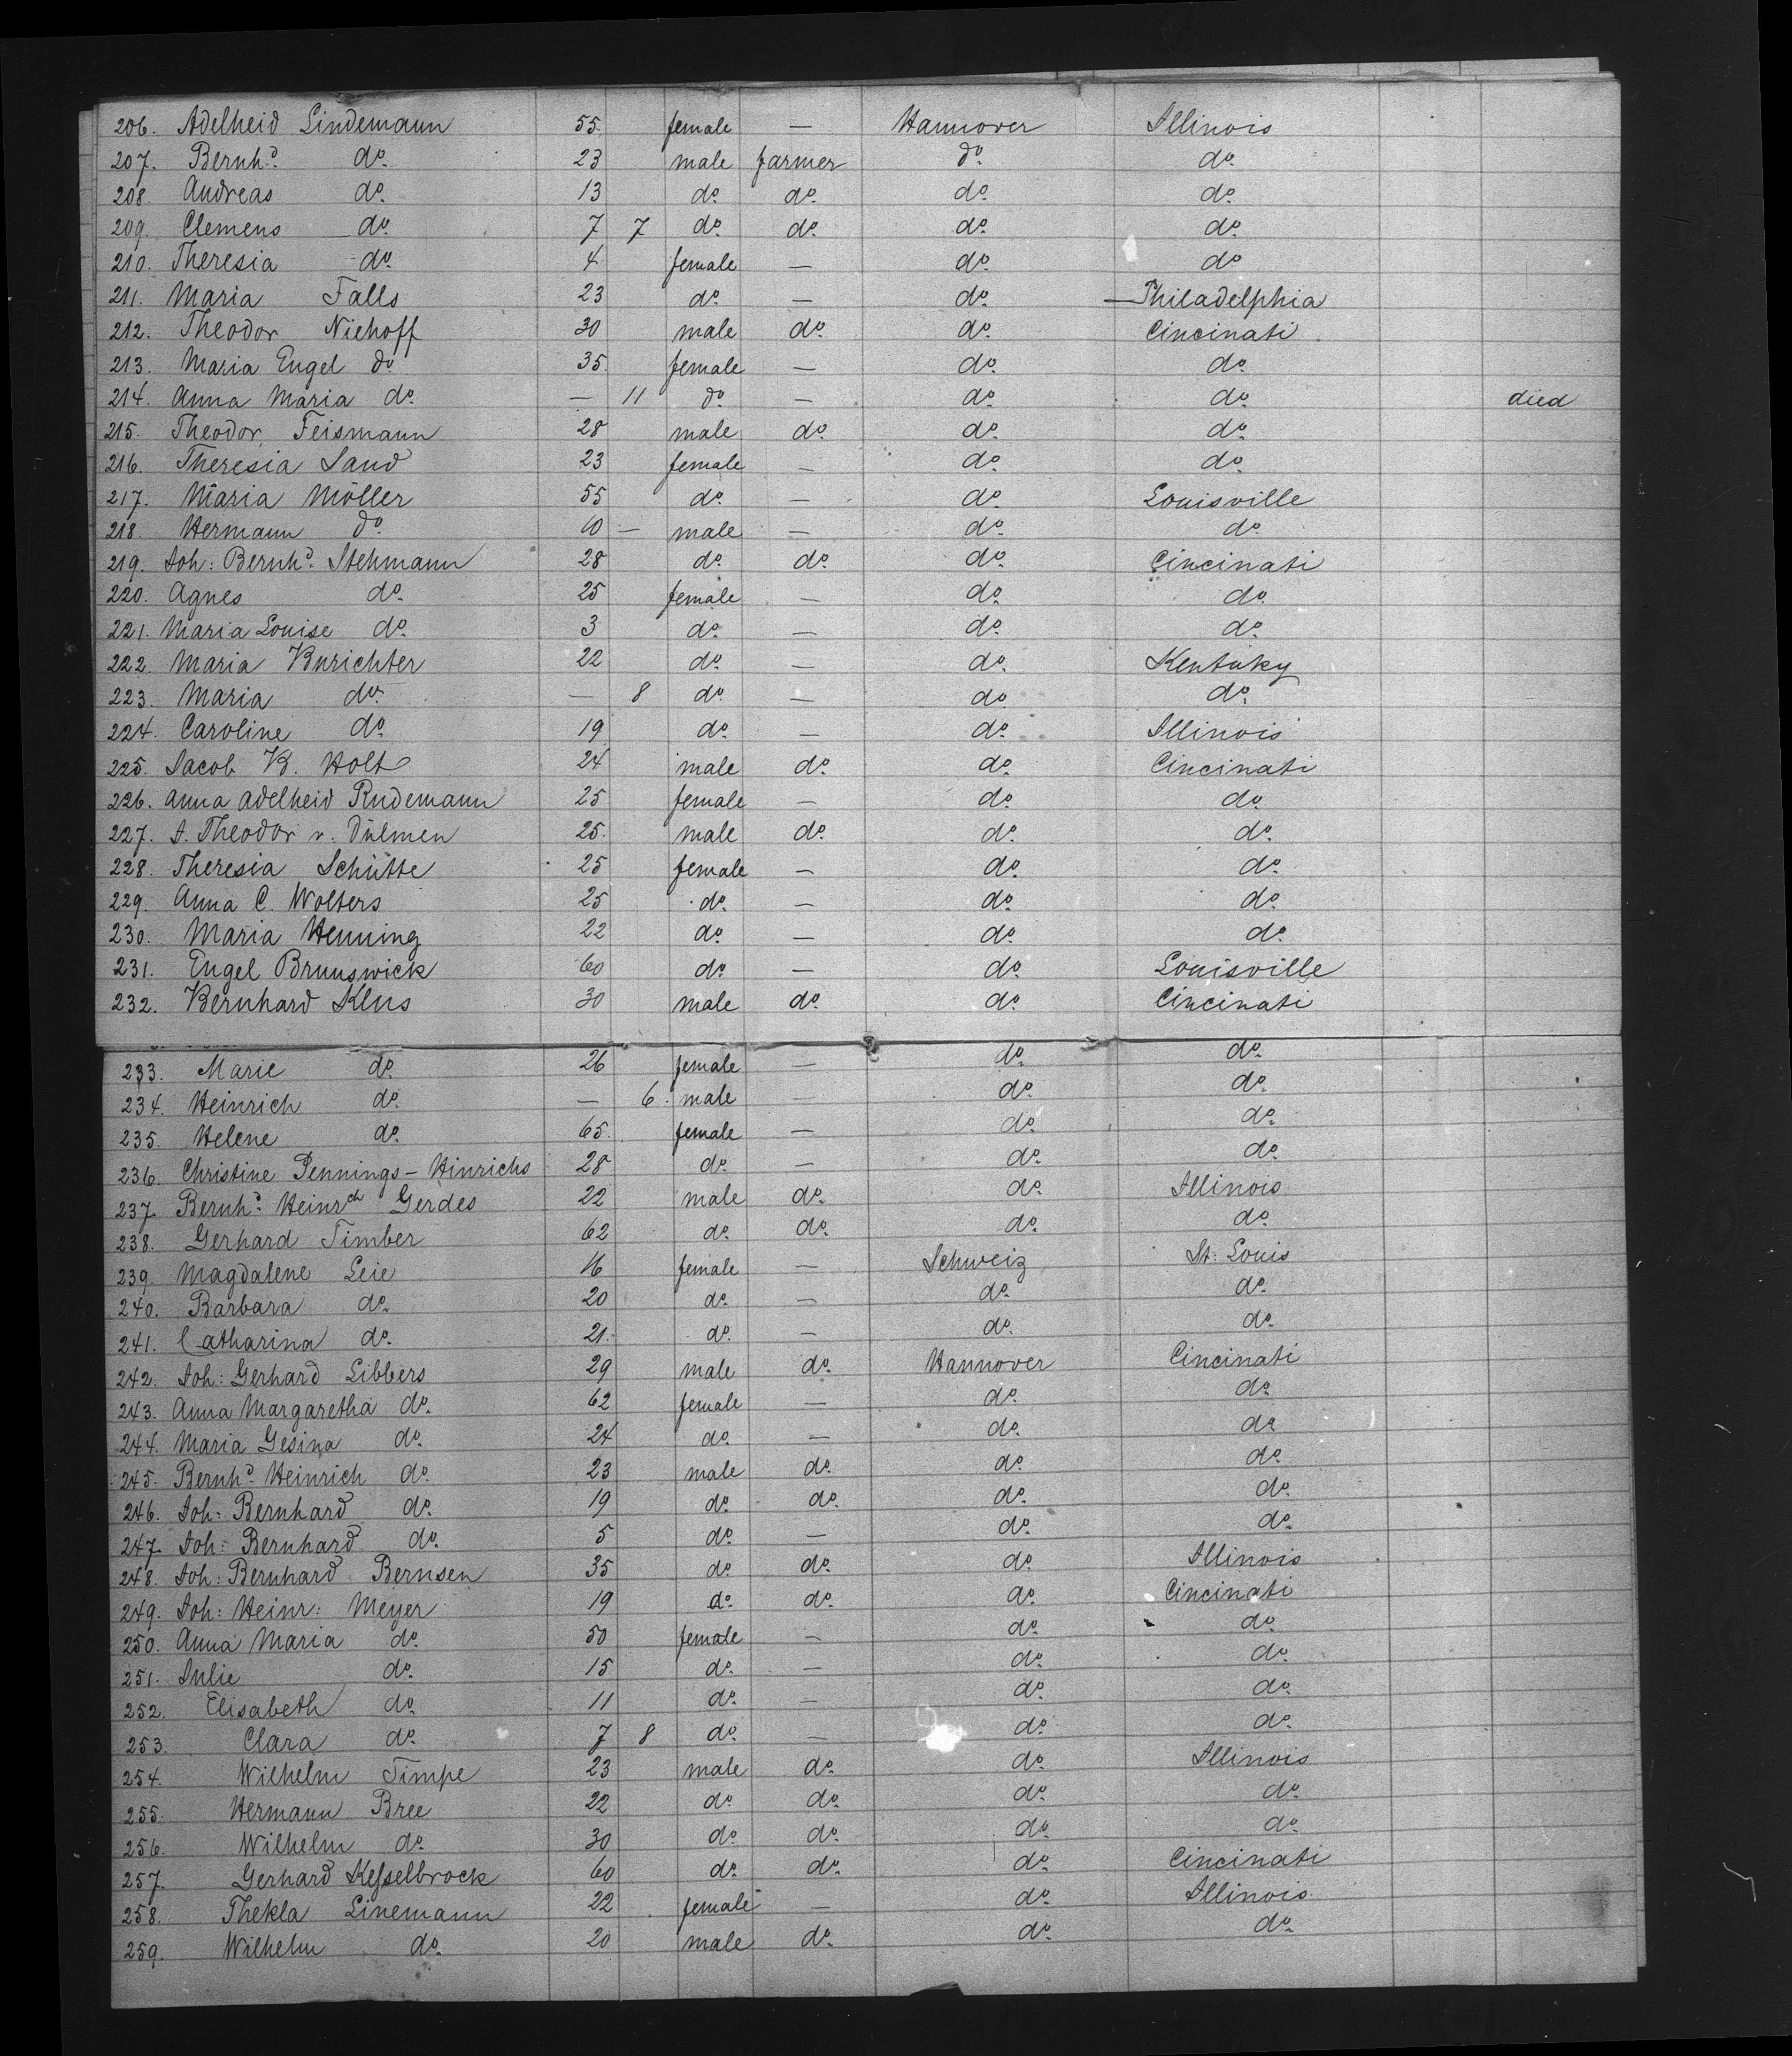 206. Adelheid Lindemann 55. female — Hannover Illinois
207. Bernhd. do. 23 male farmer do. do.
208. Andreas do. 13 do. do. do. do.
209. Clemens do. 7 7 do. do. do. do.
210. Theresia do. 4 female — do. do.
211. Maria Falls 23 do. — do. Philadelphia
212. Theodor Niehoff 30 male do. do. Cincinati
213. Maria Engel do. 35. female — do. do.
214. Anna Maria do. — 11 do. — do. do. died
215. Theodor Feismann 28 male do. do. do.
216. Theresia Sand 23 female — do. do.
217. Maria Möller 55 do. — do. Louisville
218. Hermann do. 10 — male — do. do.
219. Joh: Bernhd. Stehmann 28 do. do. do. Cincinati
220. Agnes do. 25 female — do. do.
221. Maria Louise do. 3 do. — do. do.
222. Maria 22 do. — do. Kentuky
223. Maria do. — 8 do. — do. do.
224. Caroline do. 19 do. — do. Illinois
225. Jacob B. Holt 24 male do. do. Cincinati
226. Anna Adelheid Rudemann 25 female — do. do.
227. J. Theodor v. Dülmen 25. male do. do. do.
228. Theresia Schütte 25 female — do. do.
229. Anna C. Wolters 25 do. — do. do.
230. Maria Henning 22 do. — do. do.
231. Engel Brunswick 60 do. — do. Louisville
232. Bernhard Klus 30 male do. do. Cincinati
233. Marie do. 26 female — do. do.
234. Heinrich do. — 6. male — do. do.
235. Helene do. 65. female — do. do.
236. Christine Pennings-Hinrichs 28 do. — do. do.
237. Bernhd. Heinrch Gerdes 22 male do. do. Illinois
238. Gerhard Timber 62 do. do. do. do.
239. Magdalene Leie 16 female — Schweiz St: Louis
240. Barbara do. 20 do. — do. do.
241. Catharina do. 21. do. — do. do.
242. Joh: Gerhard Libbers 29 male do. Hannover Cincinati
243. Anna Margaretha do. 62 female — do. do.
244. Maria Gesina do. 24 do. — do. do.
245. Bernhd. Heinrich do. 23 male do. do. do.
246. Joh: Bernhard do. 19 do. do. do. do.
247. Joh: Bernhard do. 5 do. — do. do.
248. Joh: Bernhard Bernsen 35 do. do. do. Illinois
249. Joh: Heinr: Meyer 19 do. do. do. Cincinati
250. Anna Maria do. 50 female — do. do.
251. Julie do. 15 do. — do. do.
252. Elisabeth do. 11 do. — do. do.
253. Clara do. 7 8 do. — do. do.
254. Wilhelm Timpe 23 male do. do. Illinois
255. Hermann Bree 22 do. do. do. do.
256. Wilhelm do. 30 do. do. do. do.
257. Gerhard Kesselbrock 60 do. do. do. Cincinati
258. Thekla Linemann 22 female — do. Illinois
259. Wilhelm do. 20 male do. do. do.